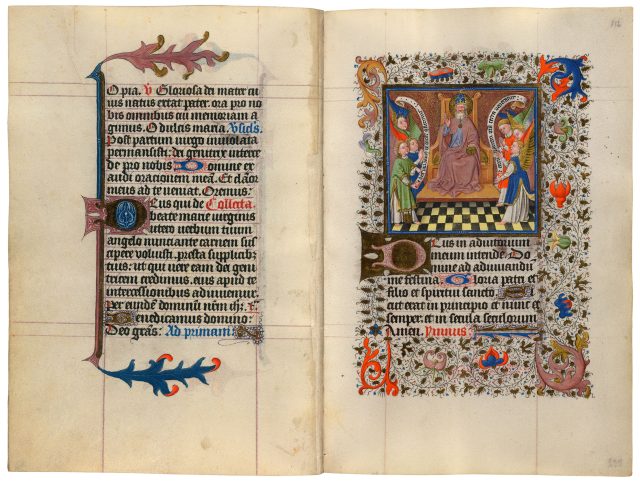 O pia. V Gloriosa dei mater cu
ius natus extat pater. ora pro no
bis omnibus cui memoriam a
gimus. O dulcis maria. Vsicls.
Post partum virgo inviolata
permansisti. dei genitrix interce
de pro nobis Domine ex
audi orationem meā. Et clamor
meus ad te veniat. Oremus.
Deus qui de Collecta
beate marie virginis
utero verbum tuum
angelo nunciante carnem sus
cipere voluisti. presta supplicib;
tuis: ut qui vere eam dei geni
tricem credimus. eius apud te
intercessionibus adiuuemur.
Per eundē dominū nēm
Benedicamus domino:
Deo gr̄as: Ad primam
Deus in adiutorium
meum intende. Do
mine ad adiuuandū
me festina. Gloria patri et
filio et spiritui sancto
icut erat in principio et nunc et
semper: et in secula seculorum
Amen.